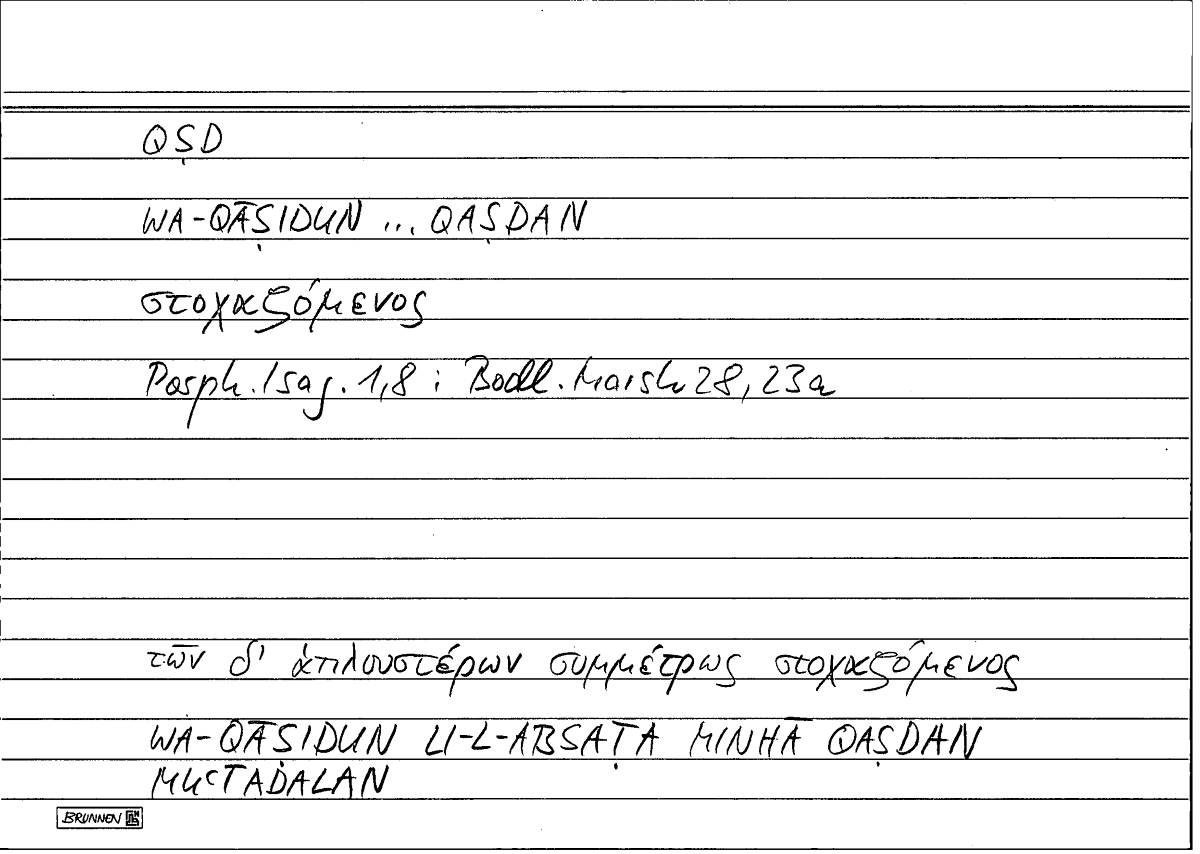 QṢD
WA-QĀṢIDUN ... QAṢDAN
στοχαζόμενος
Porph. Isag. 1,8 : Bodl. Marsh 28, 23a
τῶν δ' ἁπλουστέρων συμμέτρως στοχαζόμενος
WA-QĀṢIDUN LI-L-ABSAṬA MINHĀ QAṢDAN
MUʿTADALAN
BRUNNEN